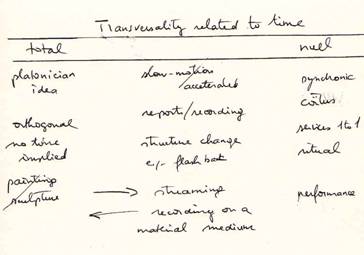 Transversality related to time
total nuel
platonician slow-motion/ synchronic
idea accelerated coïtus
reports/recording
orthogonal services 1 to 1
no time structure change ritual
implied e/- flash back
painting/ → streaming performance
sculpture ← recording on a
material medium